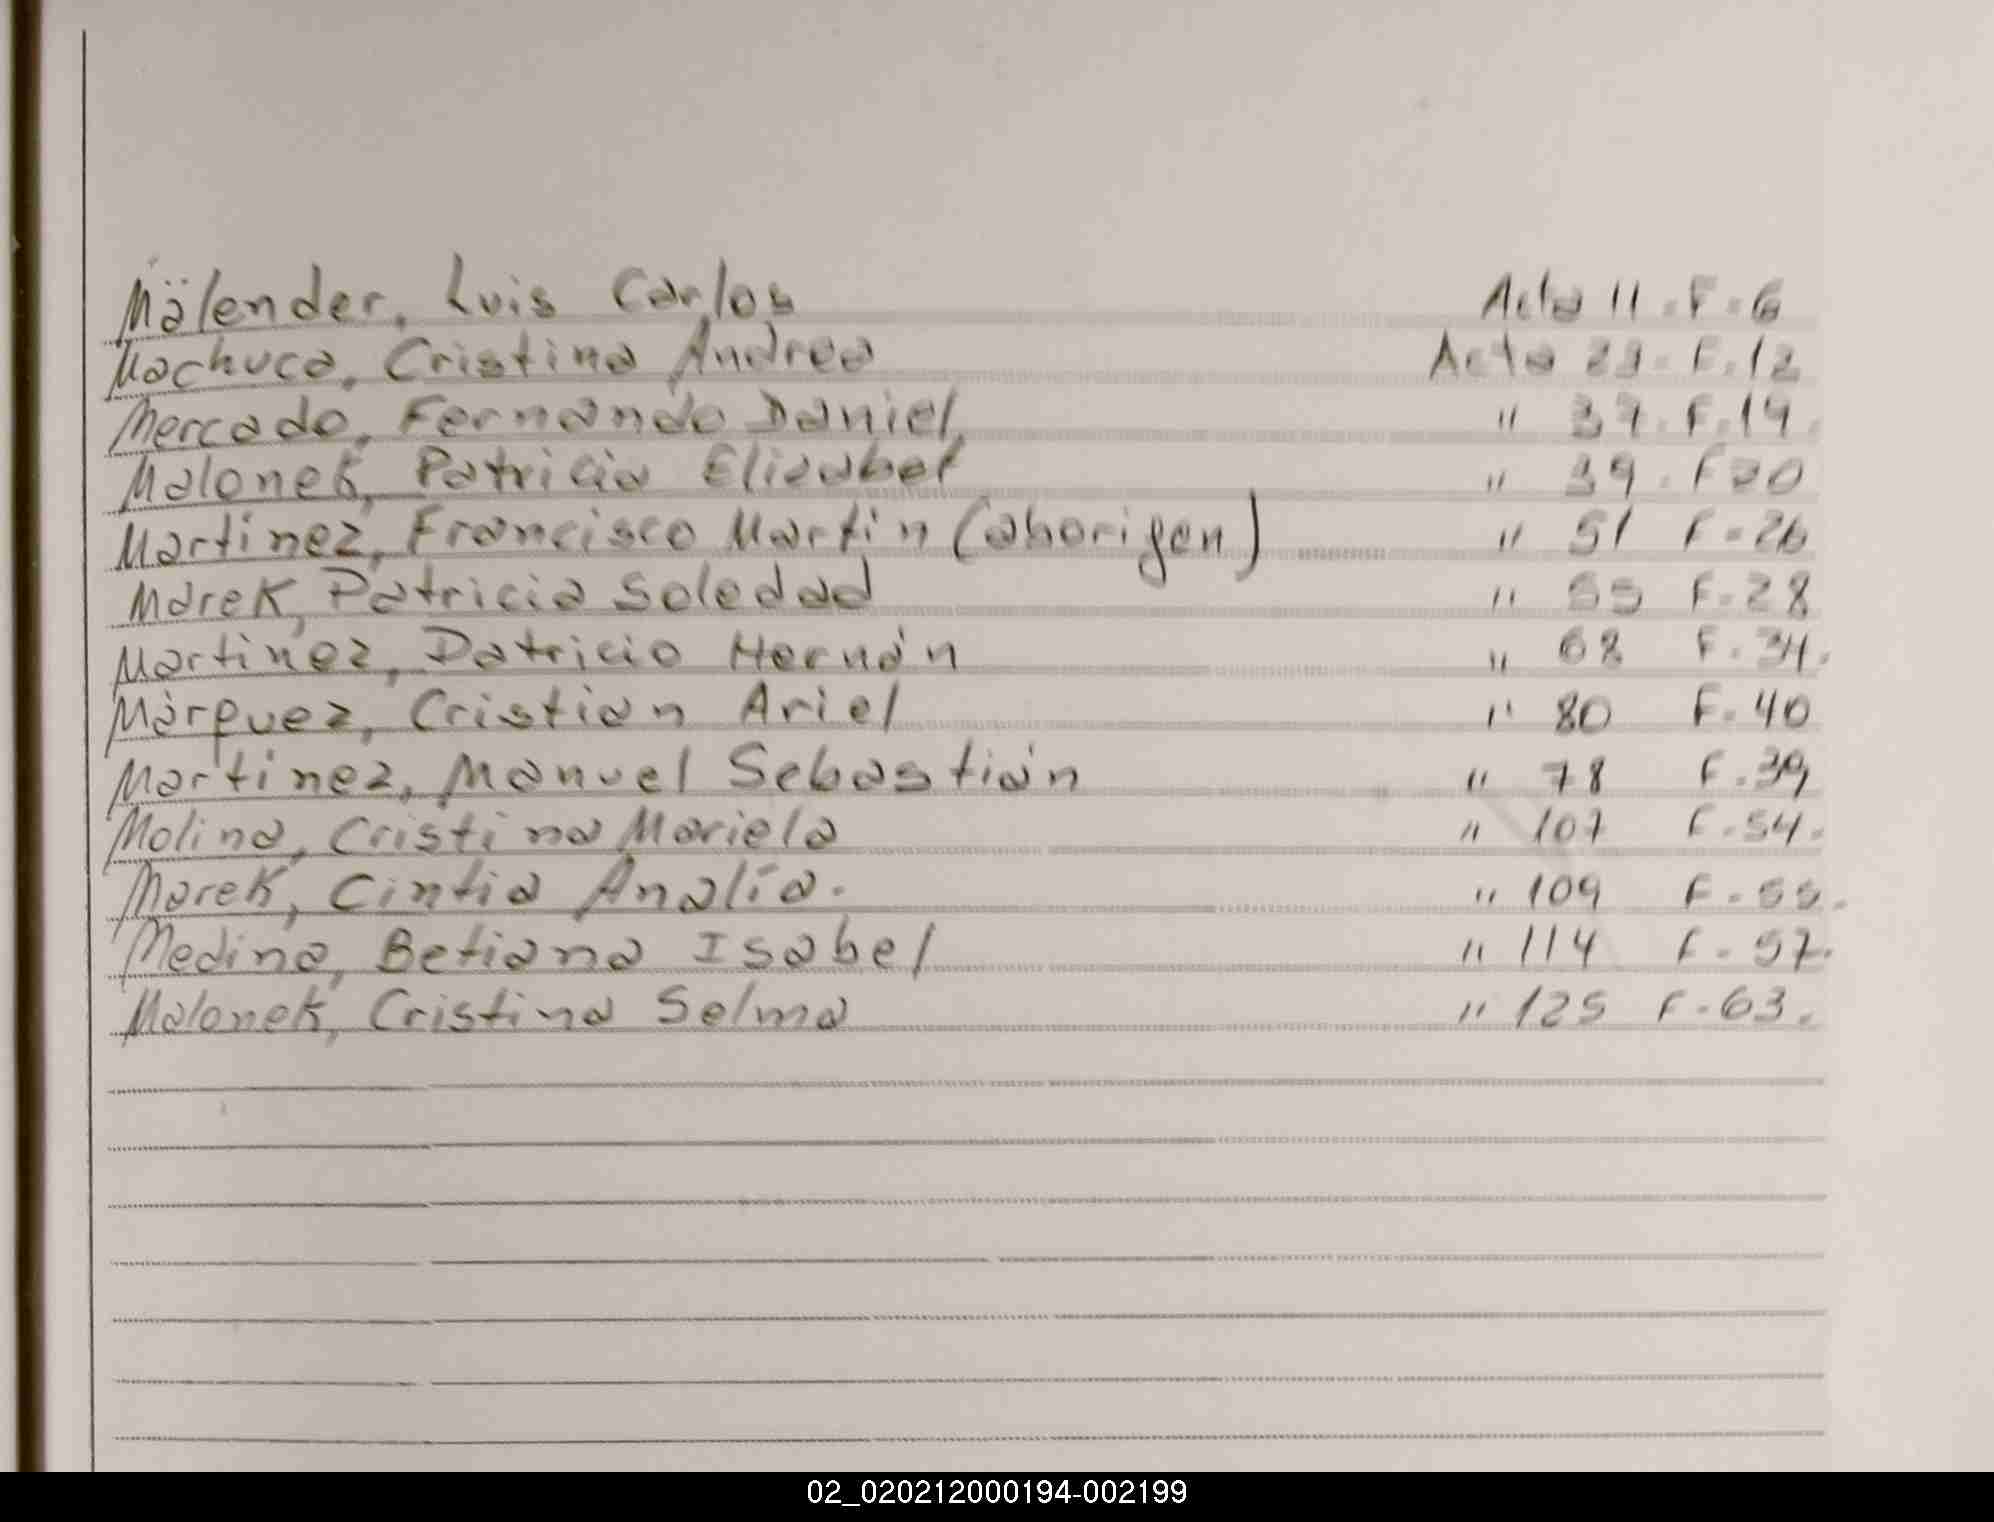 Mälender, Luis Carlos Acta 11 . F . 6
Machuca, Cristina Andrea Acta 23 . F . 12
Mercado, Fernando Daniel, " 37 . F . 19 .
Malonek, Patricia Elizabet " 39 . F 20
Martinez, Francisco Martin (aborigen) " 51 F . 26
Marek, Patricia Soledad " 55 F . 28
Martinez, Patricio Hernán " 68 F . 34 .
Márquez, Cristian Ariel " 80 F . 40
Martinez, Manuel Sebastián " 78 F . 39
Molina, Cristina Mariela " 107 F . 54 .
Marek, Cintia Analía . " 109 F . 55 .
Medina, Betiana Isabel " 114 F . 57 .
Malonek, Cristina Selma " 125 F . 63 .
02_020212000194-002199